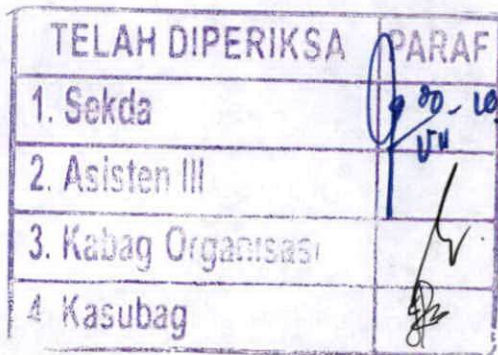 TELAH DIPERIKSA PARAF
1. Sekda
2. Asisten III
3. Kabag Organisasi
4 Kasubag